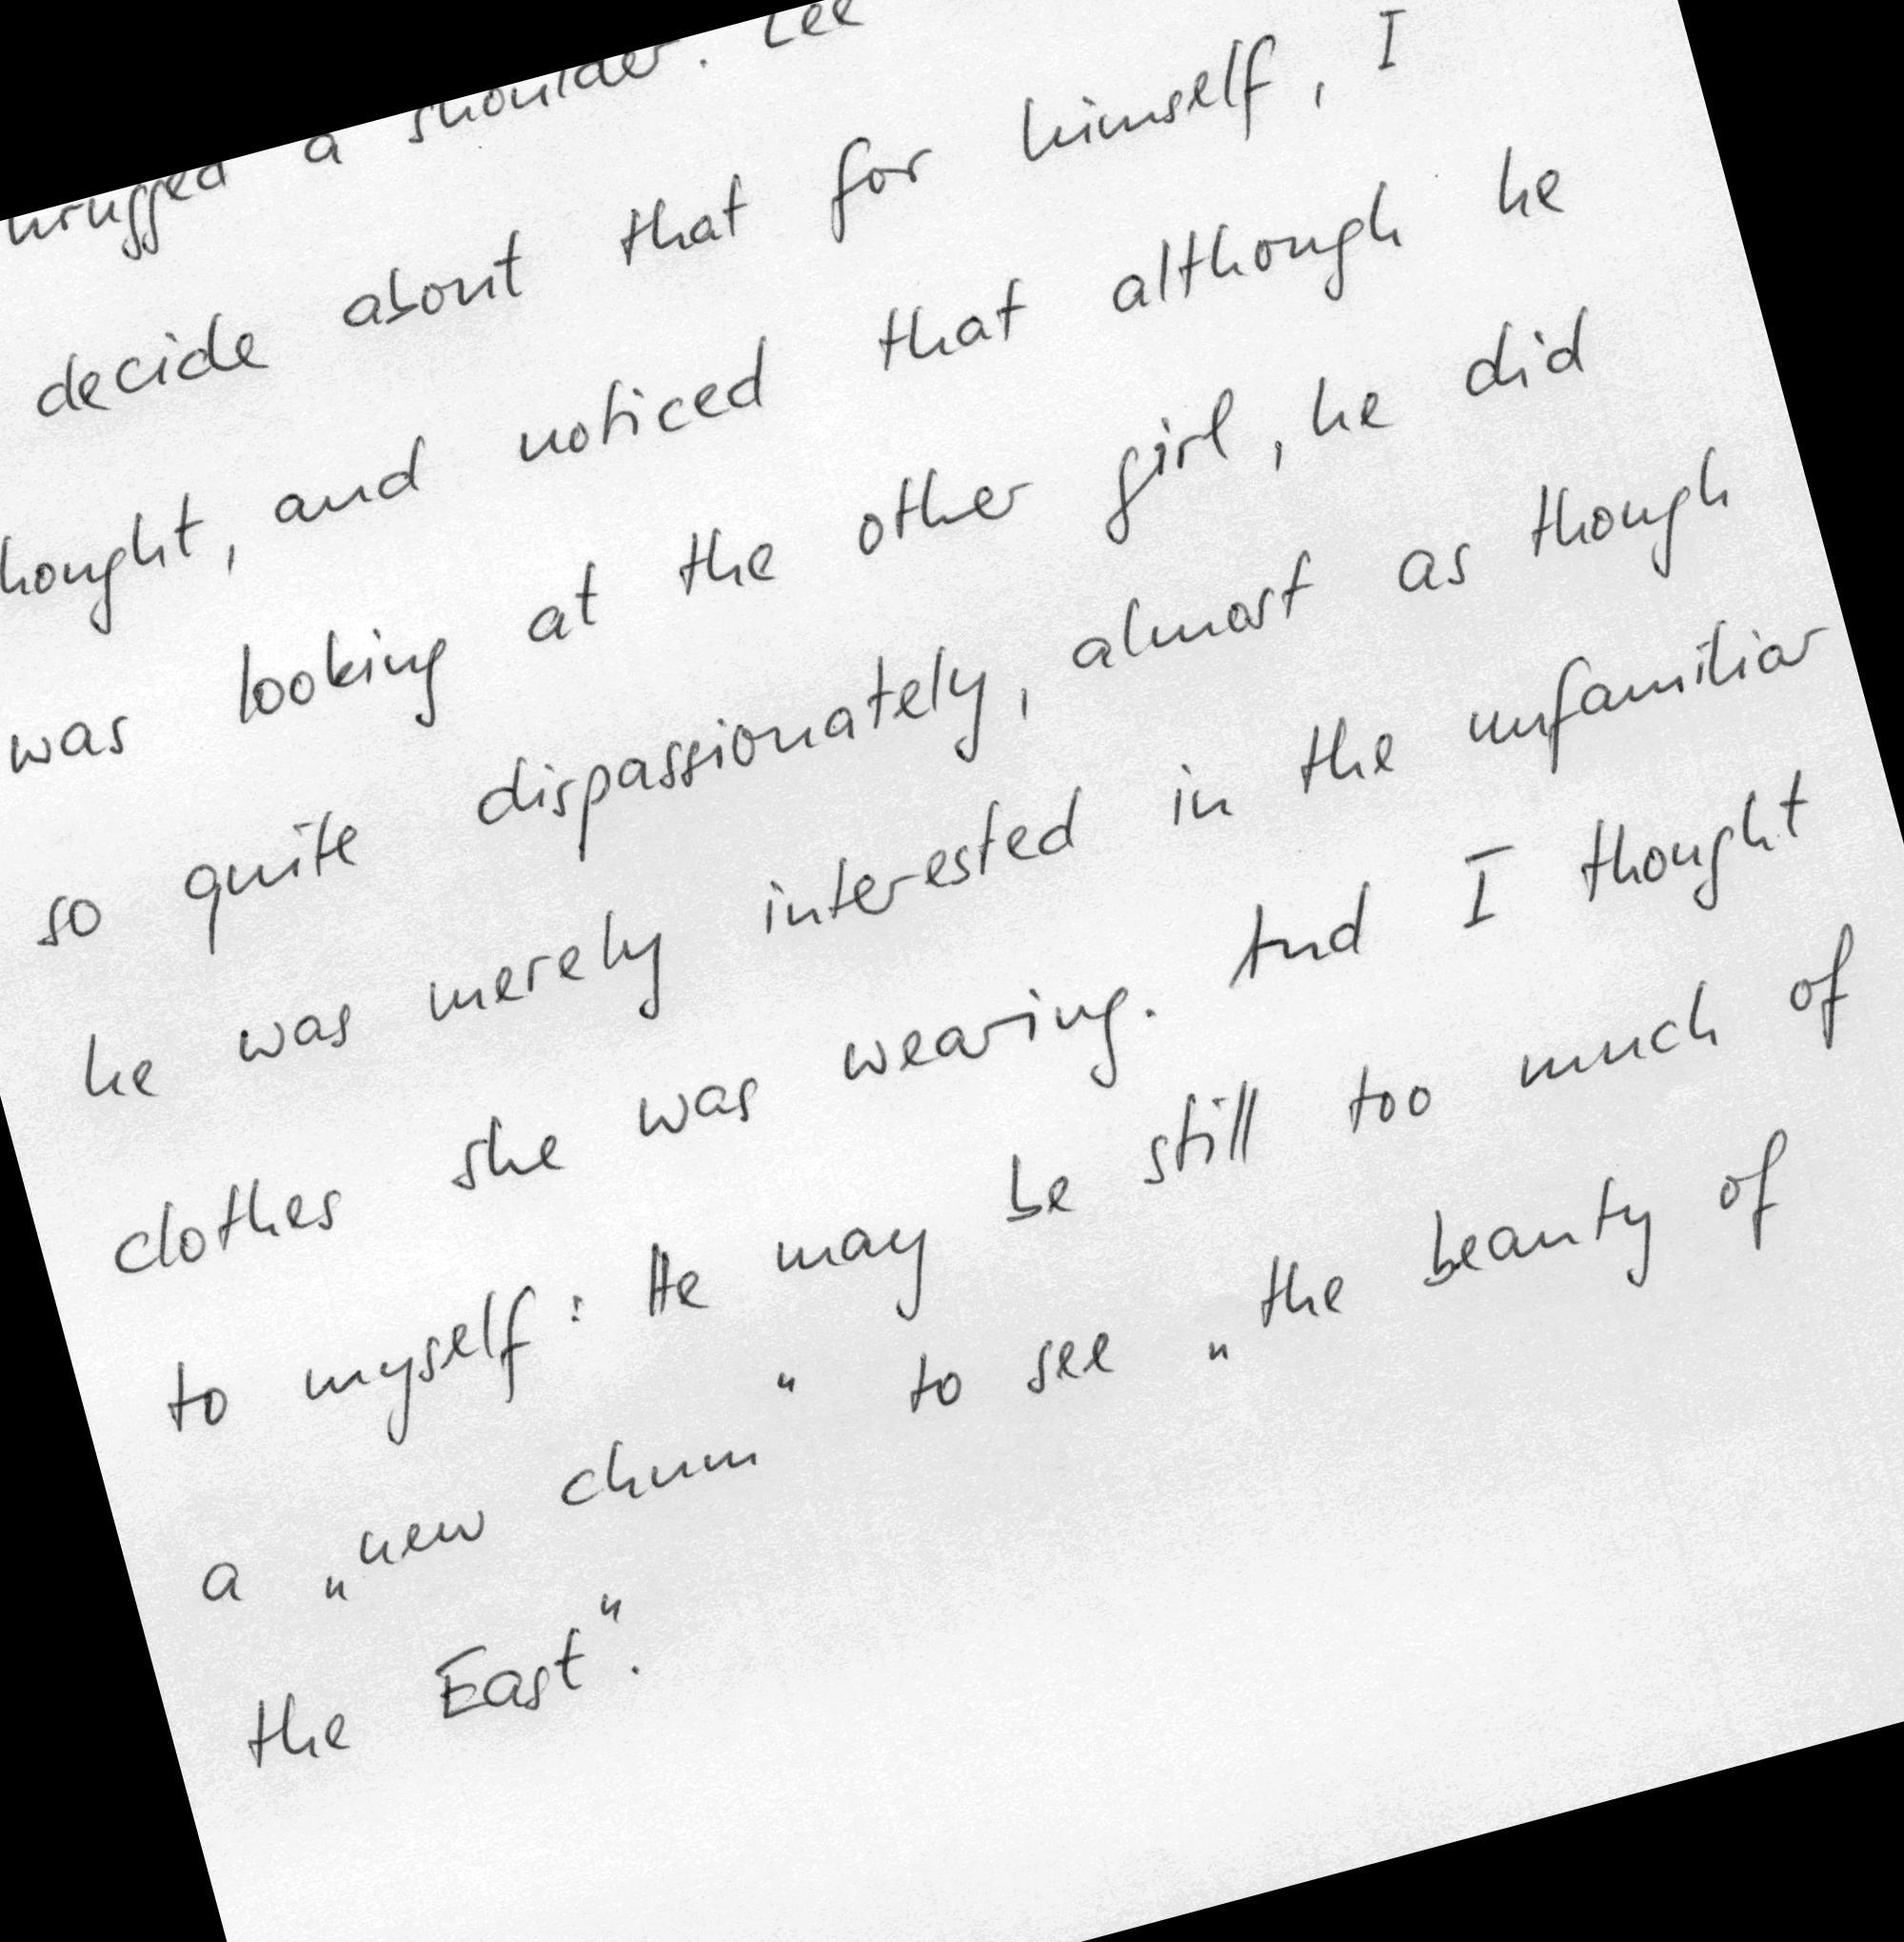 hrugged a shoulder. Lee
decide about that for himself, I
hought, and noticed that although he
was looking at the other girl, he did
so quite dispassionately, almost as though
he was merely interested in the unfamiliar
clothes she was wearing. And I thought
to myself: He may be still too much of
a „new chum" to see „the beauty of
the East".